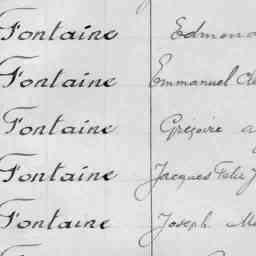 Fontaine Edmond
Fontaine Emmanuel
Fontaine Grégoire
Fontaine Jacques Felix
Fontaine Joseph